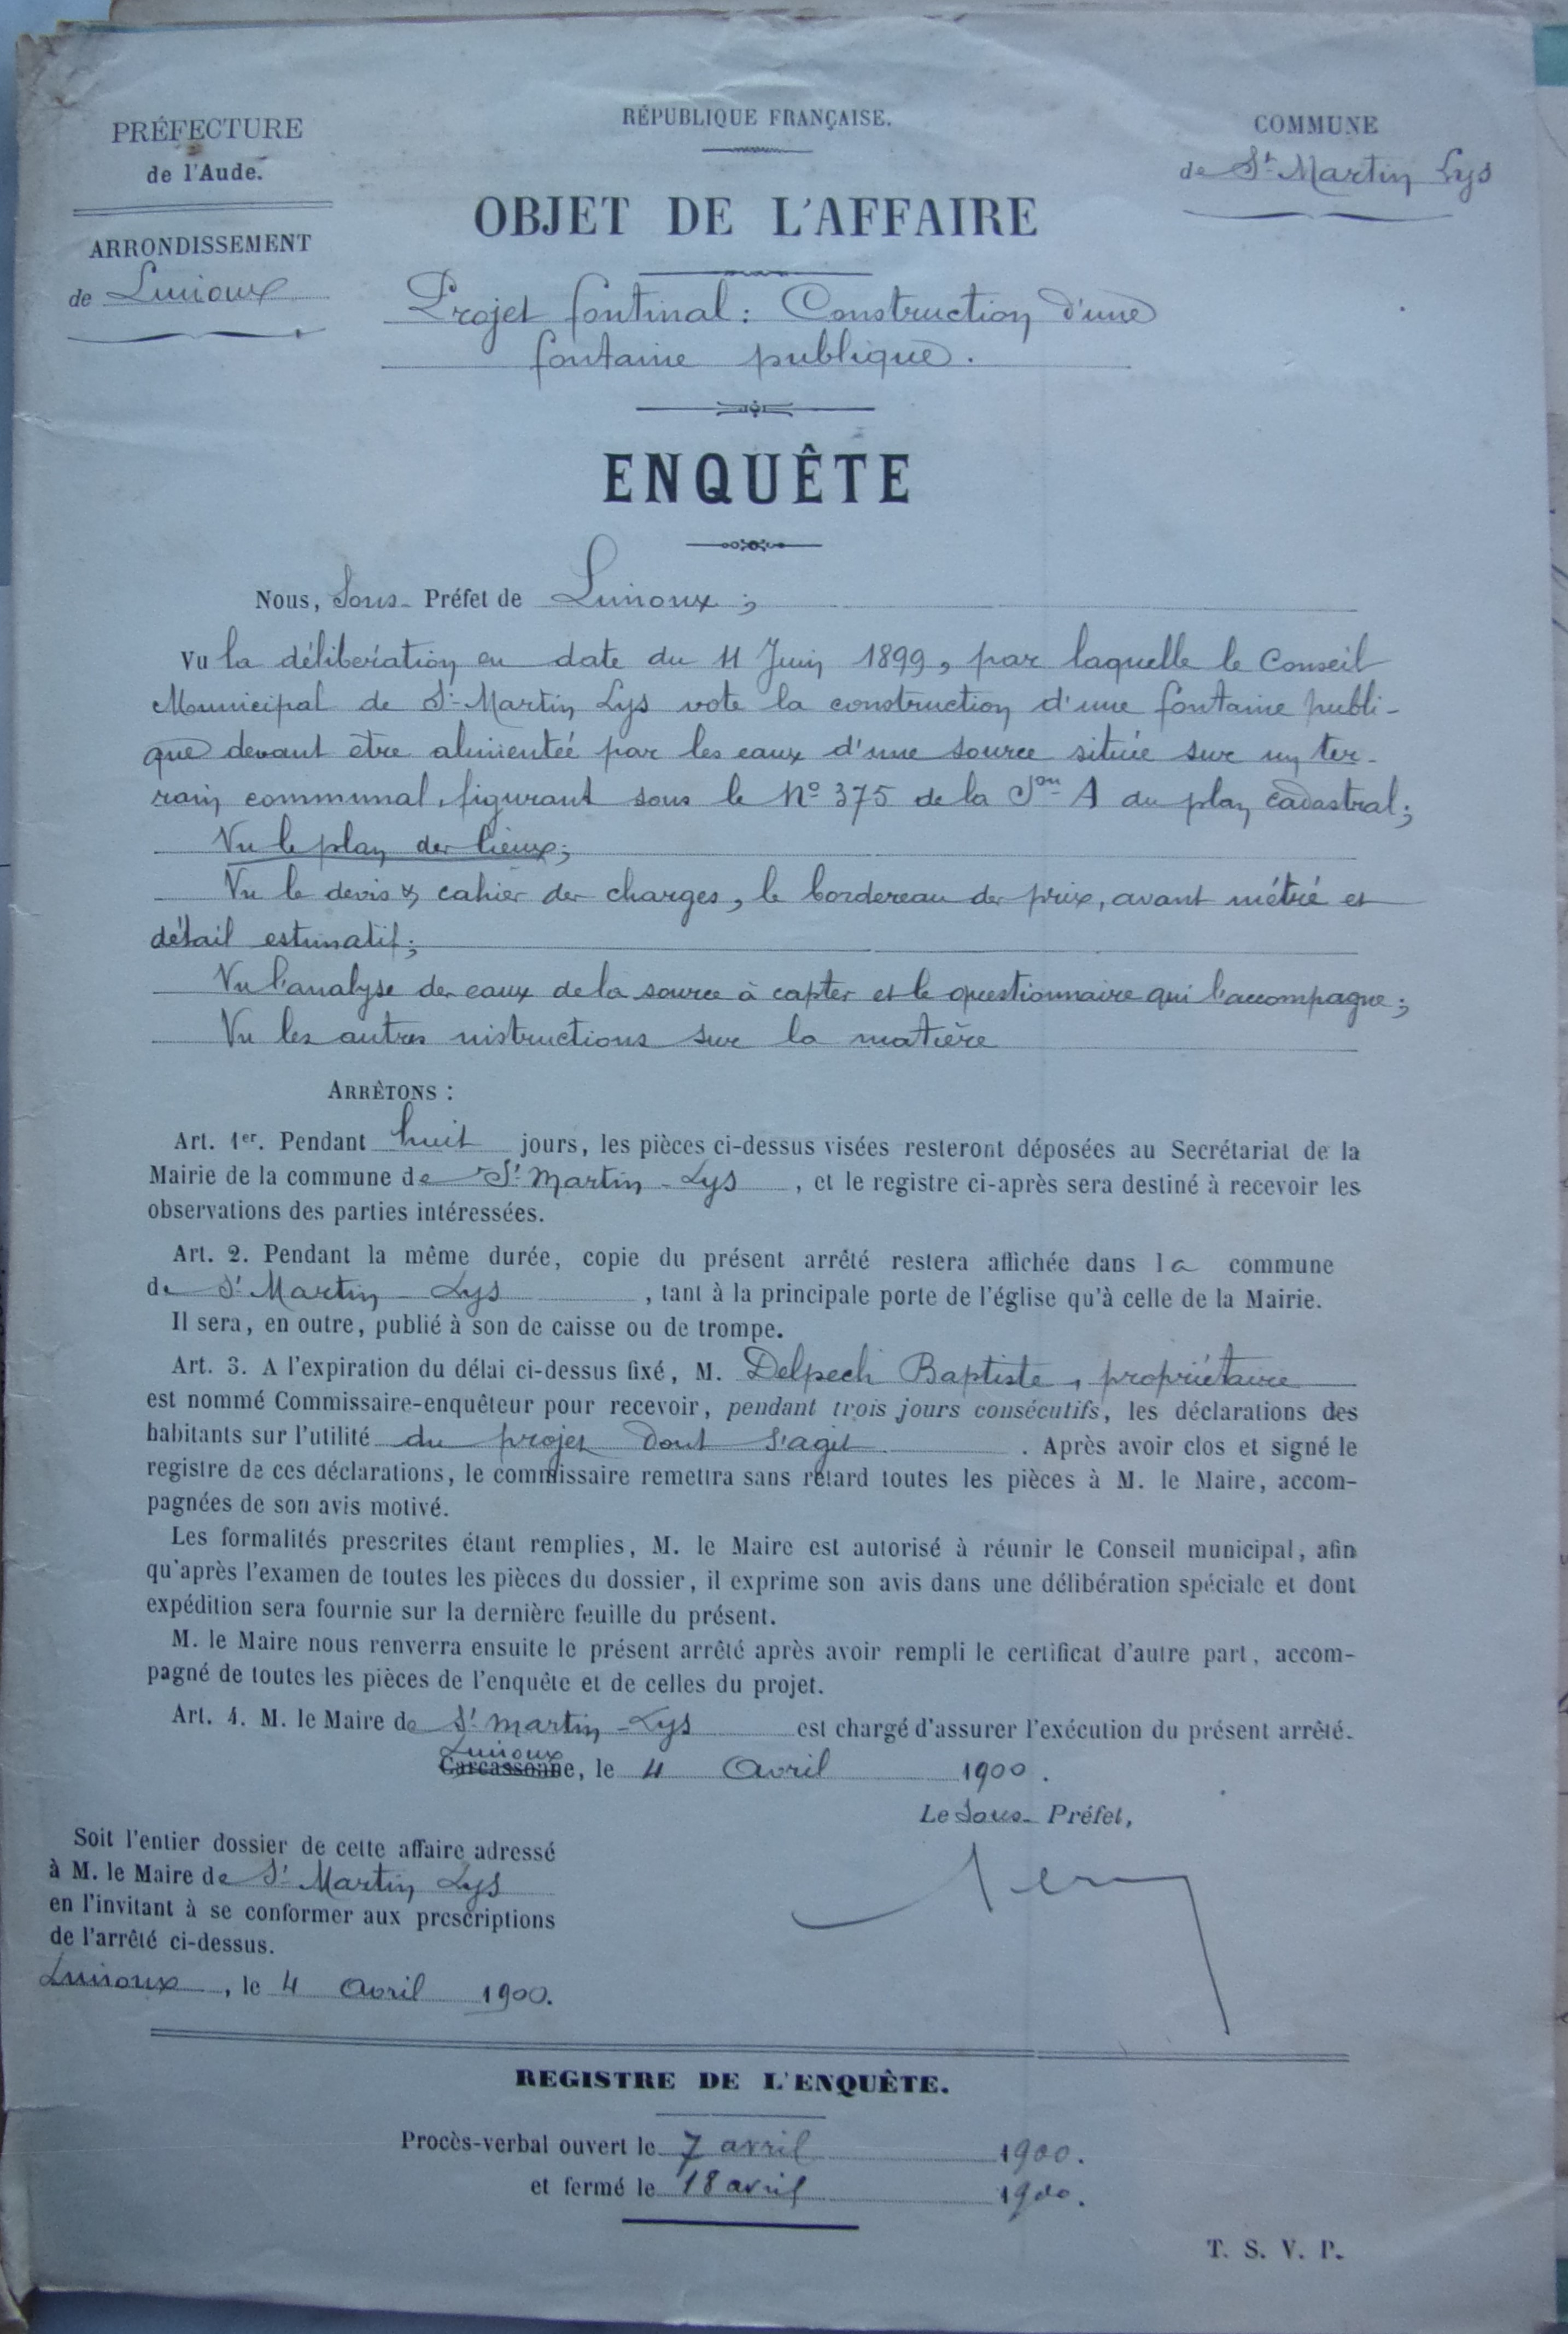 PRÉFECTURE
de l'Aude.
ARRONDISSEMENT
de Limoux
RÉPUBLIQUE FRANÇAISE.
OBJET DE L'AFFAIRE
Projet fontinal : Construction d'une
fontaine publique.
COMMUNE
de St Martin Lys
ENQUÊTE
Nous, Sous- Préfet de Limoux ;
Vu la délibération en date du 11 Juin 1899, par laquelle le Conseil
Municipal de St Martin Lys vote la construction d'une fontaine publi-
que devant être alimentée par les eaux d'une source située sur un ter-
rain communal, figurant sous le No 375 de la Son A du plan cadastral;
Vu le plan des lieux;
Vu le devis & cahier des charges, le bordereau des prix, avant métré et
détail estimatif;
Vu l'analyse des eaux de la source à capter et le questionnaire qui l'accompagne;
Vu les autres instructions sur la matière
ARRÊTONS :
Art. 1er. Pendant huit jours, les pièces ci-dessus visées resteront déposées au Secrétariat de la
Mairie de la commune de St Martin-Lys, et le registre ci-après sera destiné à recevoir les
observations des parties intéressées.
Art. 2. Pendant la même durée, copie du présent arrêté restera affichée dans la commune
de St Martin-Lys, tant à la principale porte de l'église qu'à celle de la Mairie.
Il sera, en outre, publié à son de caisse ou de trompe.
Art. 3. A l'expiration du délai ci-dessus fixé, M. Delpech Baptiste, propriétaire
est nommé Commissaire-enquêteur pour recevoir, pendant trois jours consécutifs, les déclarations des
habitants sur l'utilité du projet dont s'agit. Après avoir clos et signé le
registre de ces déclarations, le commissaire remettra sans retard toutes les pièces à M. le Maire, accom-
pagnées de son avis motivé.
Les formalités prescrites étant remplies, M. le Maire est autorisé à réunir le Conseil municipal, afin
qu'après l'examen de toutes les pièces du dossier, il exprime son avis dans une délibération spéciale et dont
expédition sera fournie sur la dernière feuille du présent.
M. le Maire nous renverra ensuite le présent arrêté après avoir rempli le certificat d'autre part, accom-
pagné de toutes les pièces de l'enquête et de celles du projet.
Art. 4. M. le Maire de St Martin-Lys est chargé d'assurer l'exécution du présent arrêté.
Limoux
Carcassonne, le 4 Avril 1900.
Le Sous- Préfet,
Soit l'entier dossier de cette affaire adressé
à M. le Maire de St Martin Lys
en l'invitant à se conformer aux prescriptions
de l'arrêté ci-dessus.
Limoux, le 4 Avril 1900.
REGISTRE DE L'ENQUÊTE.
Procès-verbal ouvert le 7 avril 1900.
et fermé le 18 avril 1900.
T. S. V. P.